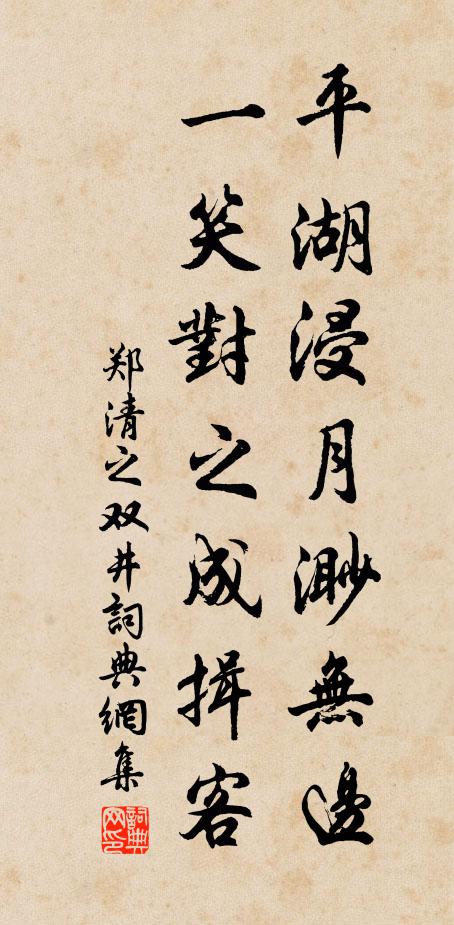 平湖浸月渺無邊
一笑對之成揖客
郑清之双井詞典網集
詞典
网印